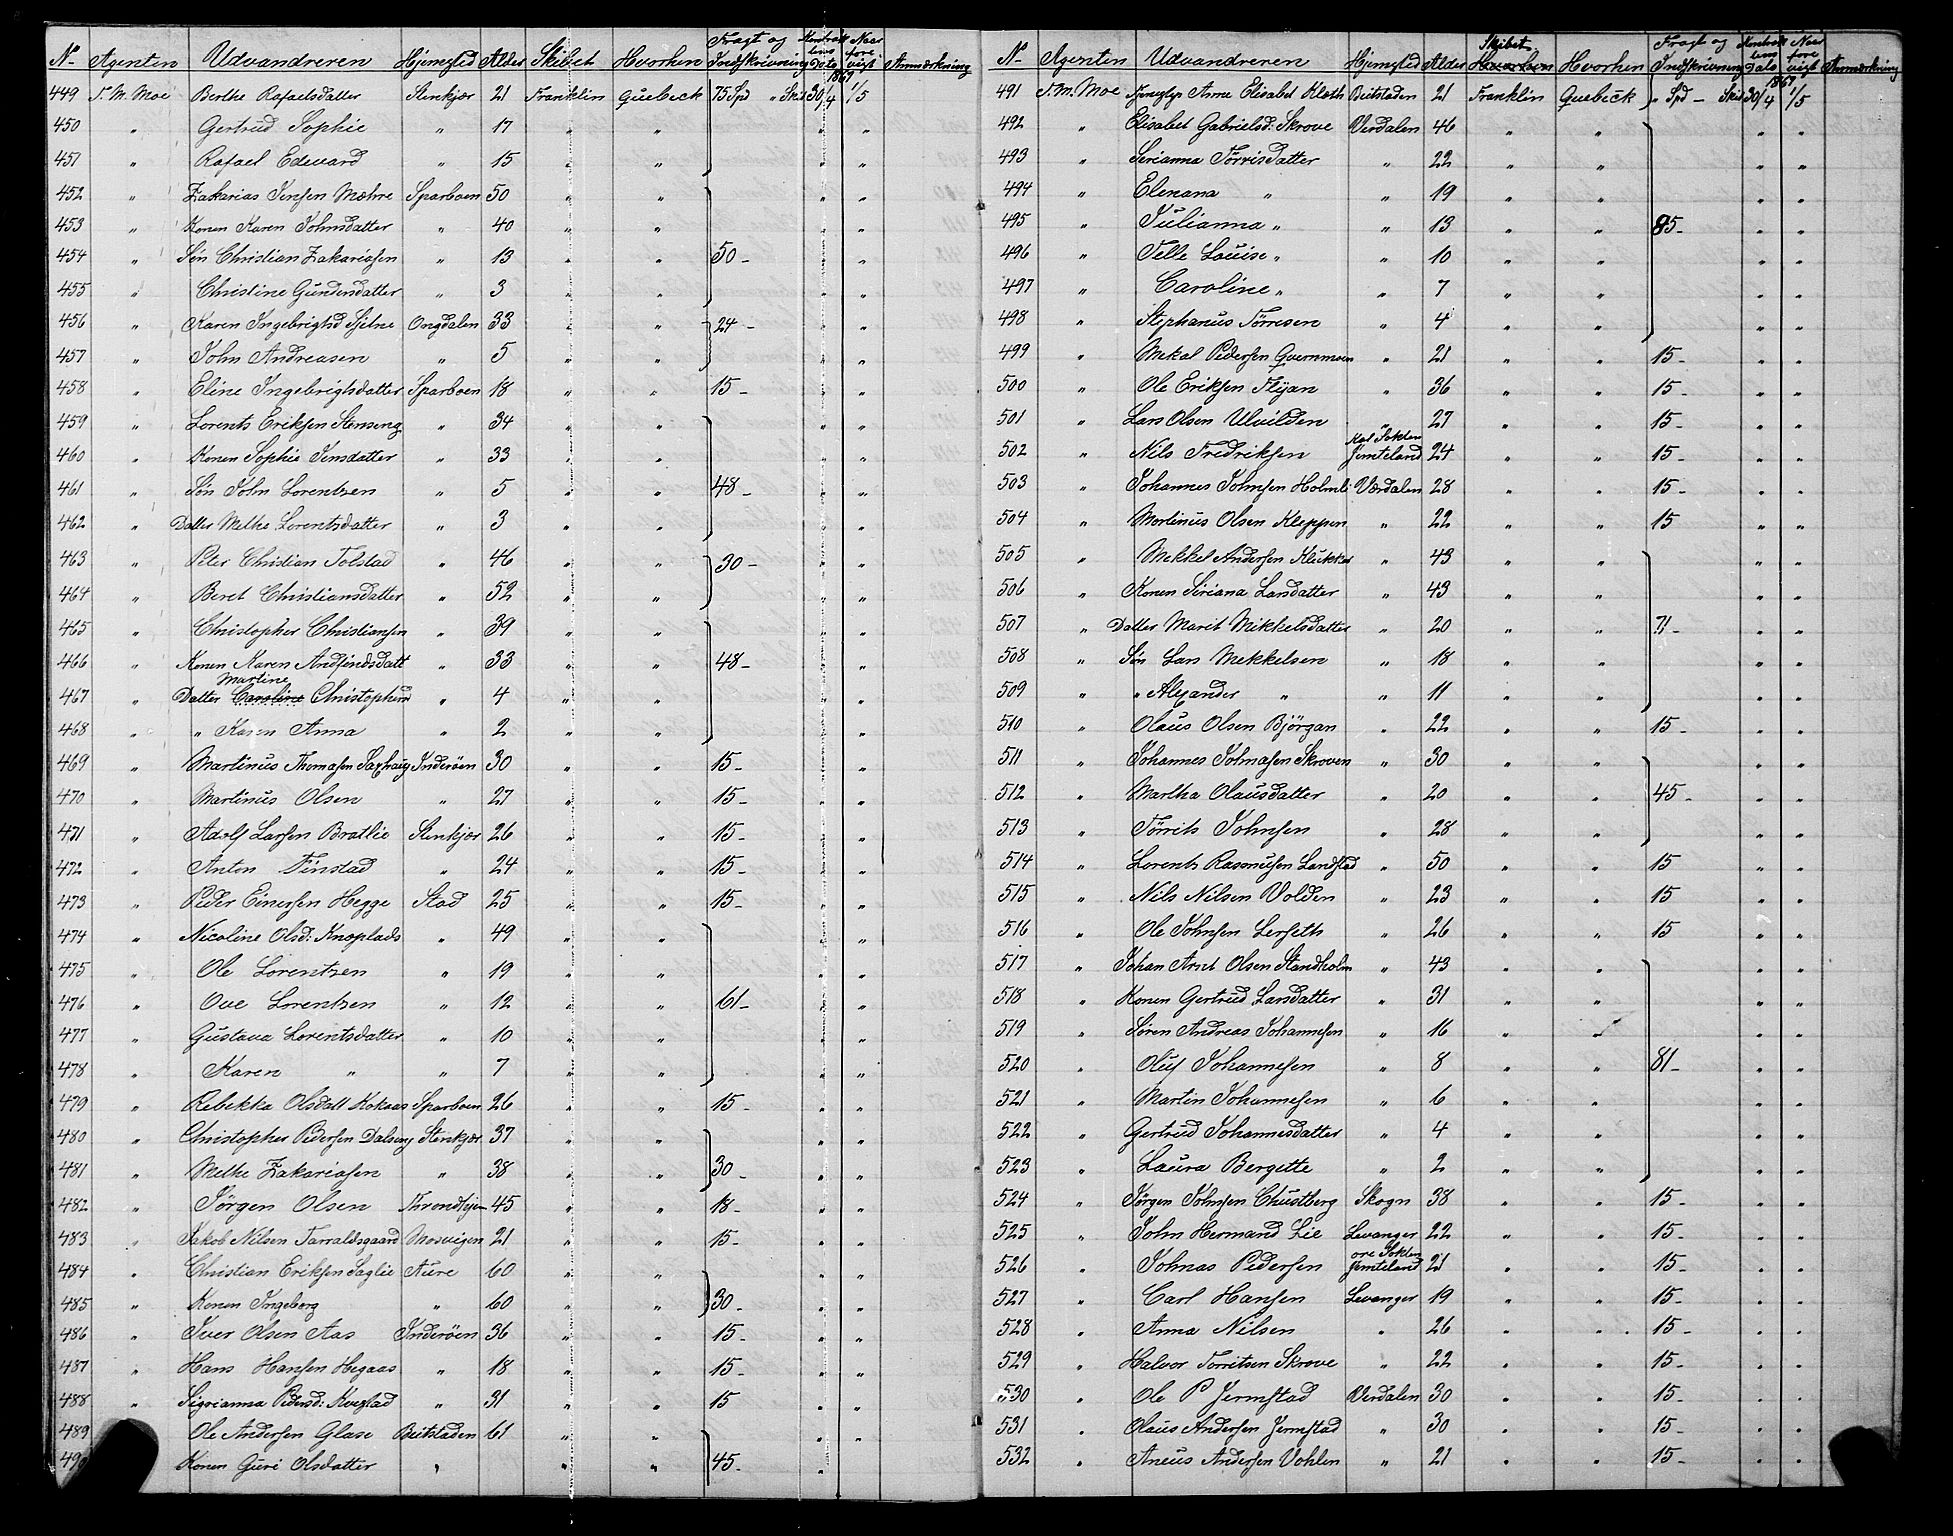 No Agenten Udvandreren Hjemsted Alder Skibet Hvorhen Fragt og Indskrivning Kontraktens Dato 1867 Naar forevist Anmærkning
449 J. M. Moe Berthe Rafaelsdatter Stenkjær 21 Franklin Quebeck 75 Spd " Skil 30/4 1/5
450 " Gertrud Sophie " 17 " " " "
451 " Rafael Edevard " 15 " " " "
452 " Zakarias Jensen Mæhre Sparboen 50 " " " "
453 " Konen Karen Johnsdatter " 40 " " " "
454 " Søn Christian Zakariasen " 13 " " 50 - " "
455 " Christine Gundersdatter " 3 " " " "
456 " Karen Ingebrigtsd Ongdalen 33 " " 24 - " "
457 " John Andreasen " 5 " " " "
458 " Eline Ingebrigtsdatter Sparboen 18 " " 15 - " "
459 " Lorents Eriksen Stenseng " 34 " " " "
460 " Konen Sophie Jensdatter " 33 " " " "
461 " Søn John Lorentsen " 5 " " 48 - " "
462 " Datter Methe Lorentsdatter " 3 " " " "
463 " Peter Christian Tolstad " 46 " " 30 - " "
464 " Beret Christiansdatter " 52 " " " "
465 " Christopher Christiansen " 39 " " " "
466 " Konen Karen Andfindsdatt " 33 " " 48 - " "
Martine
467 " Datter Caroline Christophersd " 4 " " " "
468 " " Karen Anna " 2 " " " "
469 " Martinus Thomasen Saxhaug Inderöen 30 " " 15 - " "
470 " Martinus Olsen " 27 " " 15 - " "
471 " Adolf Larsen Bratlie Stenkjær 26 " " 15 - " "
472 " Anton Finstad " 24 " " 15 - " "
473 " Peder Einersen Hegge Stad 25 " " 15 - " "
474 " Nicoline Olsd: Knoplads " 49 " " " "
475 " Ole Lorentsen " 19 " " " "
476 " Ove Lorentsen " 12 " " 61 - " "
477 " Gustava Lorentsdatter " 10 " " " "
478 " Karen " " 7 " " " "
479 " Rebekka Olsdatt Kokaas Sparboen 26 " " 15 - " "
480 " Christopher Pedersen Dalseng Stenkjær 37 " " " "
481 " Methe Zakariasen " 38 " " 30 - " "
482 " Jörgen Olsen Throndhjem 45 " " 18 - " "
483 " Jakob Nilsen Tarraldsgaard Mosvigen 21 " " 15 - " "
484 " Christian Eriksen Saglie Aure 60 " " " "
485 " Konen Ingeborg " 60 " " 30 - " "
486 " Iver Olsen Aas Inderöen 36 " " 15 - " "
487 " Hans Hansen Hegaas " 18 " " 15 - " "
488 " Sigrianna Pedersd: Kvestad " 31 " " 15 " "
489 " Ole Andersen Glase Beitstaden 61 " " " "
49 Konen Guri Olsdatter " " " 45 - "
No Agenten Udvandreren Hjemsted Alder Skibet Hvorhen Hvorhen Fragt og Indskrivning Kontraktens Dato 1867 Naar forevist Anmærkning
491 J. M. Moe Anne Elisabet Kloth Beitstaden 21 Franklin Quebeck " Spd - Skil 30/4 1/5
492 " Elisabet Gabrielsd: Skrove Verdalen 46 " " " "
493 " Serianna Törrisdatter " 22 " " " "
494 " Elenana " " 19 " " " "
495 " Julianna " " 13 " " 85 - " "
496 " Telle Louise " " 10 " " " "
497 " Caroline " " 7 " " " "
498 " Stephanus Törresen " 4 " " " "
499 " Mekal Pedersen Qvernmoen " 21 " " 15 - " "
500 " Ole Eriksen Flyan " 36 " " 15 - " "
501 " Lars Olsen Ulvilden " 27 " " 15 - " "
502 " Nils Fredriksen Kal Sokten Jemteland 24 " " 15 - " "
503 " Johannes Johnsen Holmli Værdalen 28 " " 15 - " "
504 " Mortinus Olsen Kleppen " 22 " " 15 " "
505 " Mekkel Andersen Klukken " 43 " " " "
506 " Konen Seriana Larsdatter " 43 " " " "
507 " Datter Marit Mikkelsdatter " 20 " " 71 - " "
508 " Søn Lars Mekkelsen " 18 " " " "
509 " " Alexander " " 11 " " " "
510 " Olaus Olsen Bjørgan " 22 " " 15 - " "
511 " Johannes Johnasen Skroven " 30 " " " "
512 " Martha Olausdatter " 20 " " 45 - " "
513 " Törrits Johnsen " 28 " " " "
514 " Lorents Rasmusen Landstad " 50 " " 15 " "
515 " Nils Nilsen Volden " 23 " " 15 " "
516 " Ole Johnsen Lerseth " 26 " " 15 " "
517 " Johan Arnt Olsen Standholm " 43 " " " "
518 " Konen Gertrud Larsdatter " 31 " " " "
519 " Søren Andreas Johannesen " 16 " " " "
520 " Oluf Johannesen " 8 " " 81 - " "
521 " Martin Johannesen " 6 " " " "
522 " Gertrud Johannesdatter " 4 " " " "
523 " Laura Bergette " 2 " " " "
524 " Jørgen Johnsen Skogn 38 " " 15 - " "
525 " John Hermand Lie Levanger 22 " " 15 - " "
526 " Johnas Pedersen ore Sokten Jemteland 21 " " 15 - " "
527 " Carl Hansen Levanger 19 " " 15 - " "
528 " Anna Nilsen " 26 " " 15 - " "
529 " Halvor Torritsen Skrove " 22 " " 15 - " "
530 " Ole P Jermstad Verdalen 30 " " 15 - " "
531 " Olaus Andersen Jermstad " 30 " " 15 - " "
532 " Aneus Andersen Vohlen " 21 " " 15 - " "